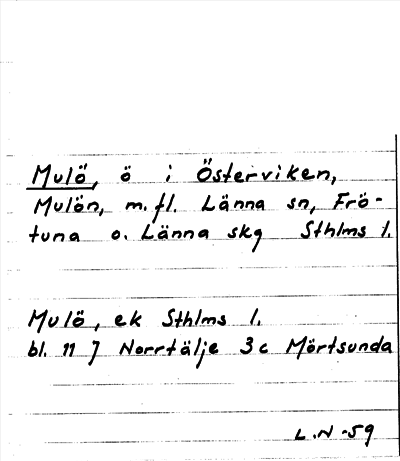 Mulö, ö i Österviken,
Mulön, m.fl. Länna sn, Frö-
tuna o. Länna skg Sthlms l.
Mulö, ek Sthlms l.
bl. 11 J Norrtälje 3c Mörtsunda
L.N-59